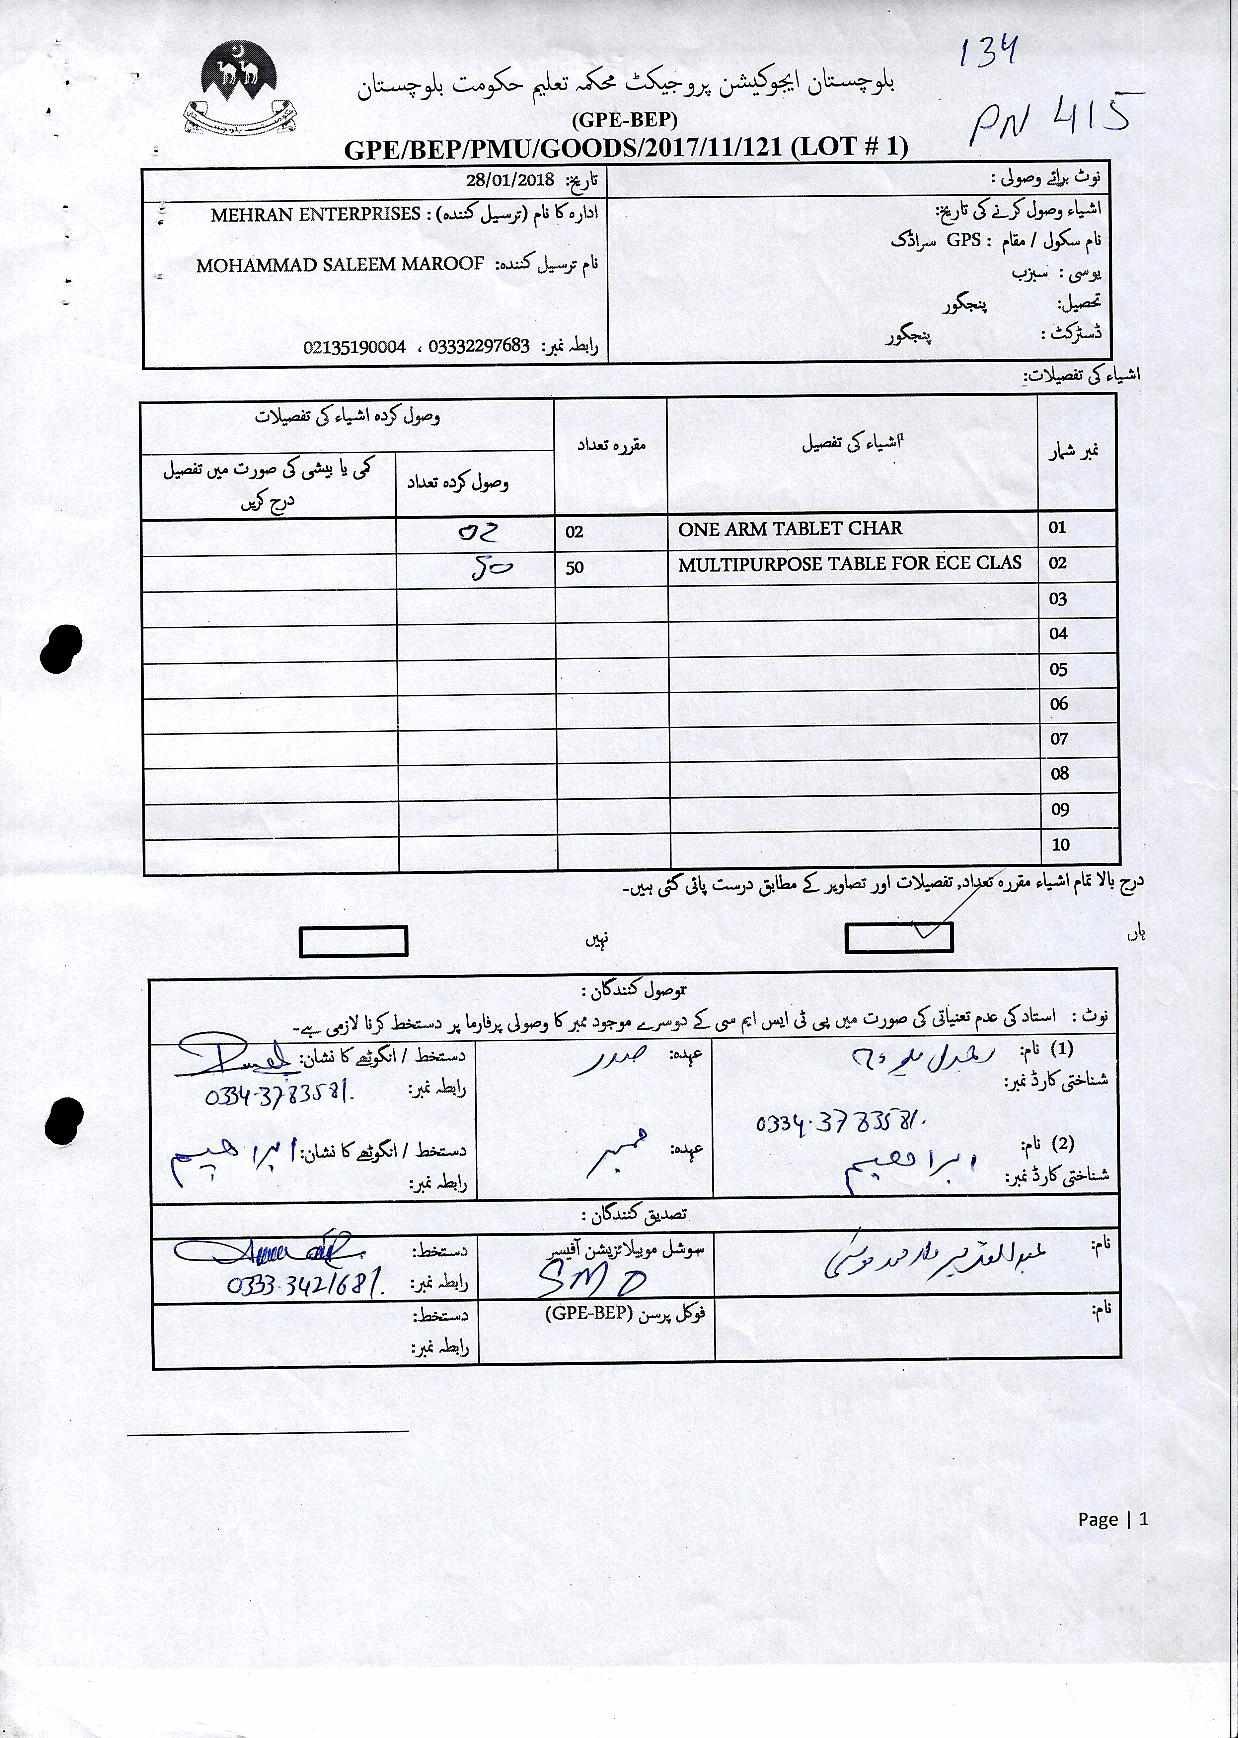 134
PN 415
بلوچستان ایجوکیشن پروجیکٹ محکمہ تعلیم حکومت بلوچستان
(GPE-BEP)
GPE/BEP/PMU/GOODS/2017/11/121 (LOT # 1)
نوٹ برائے وصولی :
تاریخ: 28/01/2018
اشیاء وصول کرنے کی تاریخ:
ادارہ کا نام (ترسیل کنندہ) : MEHRAN ENTERPRISES
نام سکول / مقام : GPS سراڈک
نام ترسیل کنندہ: MOHAMMAD SALEEM MAROOF
یوسی : سبزب
تحصیل: پنجگور
ڈسٹرکٹ : پنجگور
رابطہ نمبر: 03332297683 ، 02135190004
اشیاء کی تفصیلات:
نمبر شمار اشیاء کی تفصیل مقررہ تعداد وصول کردہ اشیاء کی تفصیلات
وصول کردہ تعداد کمی یا بیشی کی صورت میں تفصیل
درج کریں
01 ONE ARM TABLET CHAR 02 02
02 MULTIPURPOSE TABLE FOR ECE CLAS 50 50
03
04
05
06
07
08
09
10
درج بالا تمام اشیاء مقررہ تعداد, تفصیلات اور تصاویر کے مطابق درست پائی گئی ہیں۔
ہاں نہیں
توصول کنندگان :
نوٹ : استاد کی عدم تعنیاتی کی صورت میں پی ٹی ایس ایم سی کے دوسرے موجود ممبر کا وصولی پرفارما پر دستخط کرنا لازمی ہے۔
(1) نام: عہدہ: صدر دستخط / انگوٹھے کا نشان:
شناختی کارڈ نمبر: رابطہ نمبر: 0334-3783581
0334-3783581
(2) نام: ابراھیم عہدہ: ممبر دستخط / انگوٹھے کا نشان: ابراھیم
شناختی کارڈ نمبر: رابطہ نمبر:
تصدیق کنندگان :
نام: سوشل موبیلائزیشن آفیسر دستخط:
SMO رابطہ نمبر: 0333-3421681
نام: فوکل پرسن (GPE-BEP) دستخط:
رابطہ نمبر:
Page | 1